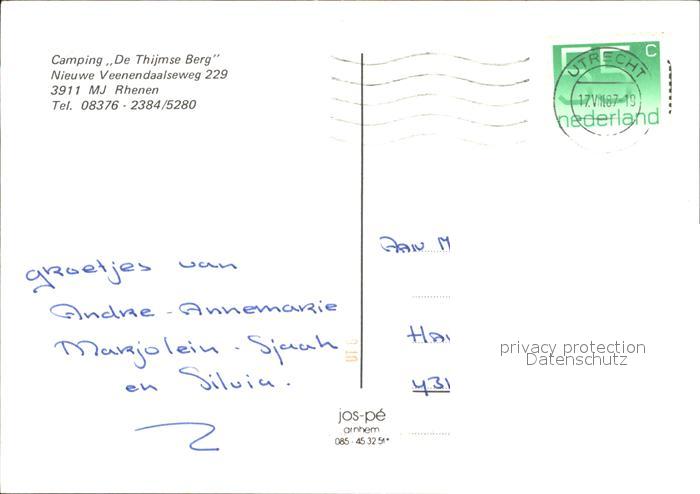 Camping ,,De Thijmse Berg"
Nieuwe Veenendaalseweg 229
3911 MJ Rhenen
Tel. 08376 - 2384/5280
55 c
nederland
UTRECHT
groetjes van
Andre - Annemarie
Marjolein - Sjaah
en Silvia.
Aan M
Ha
431
privacy protection
Datenschutz
jos-pé
arnhem
085 - 45 32 51*